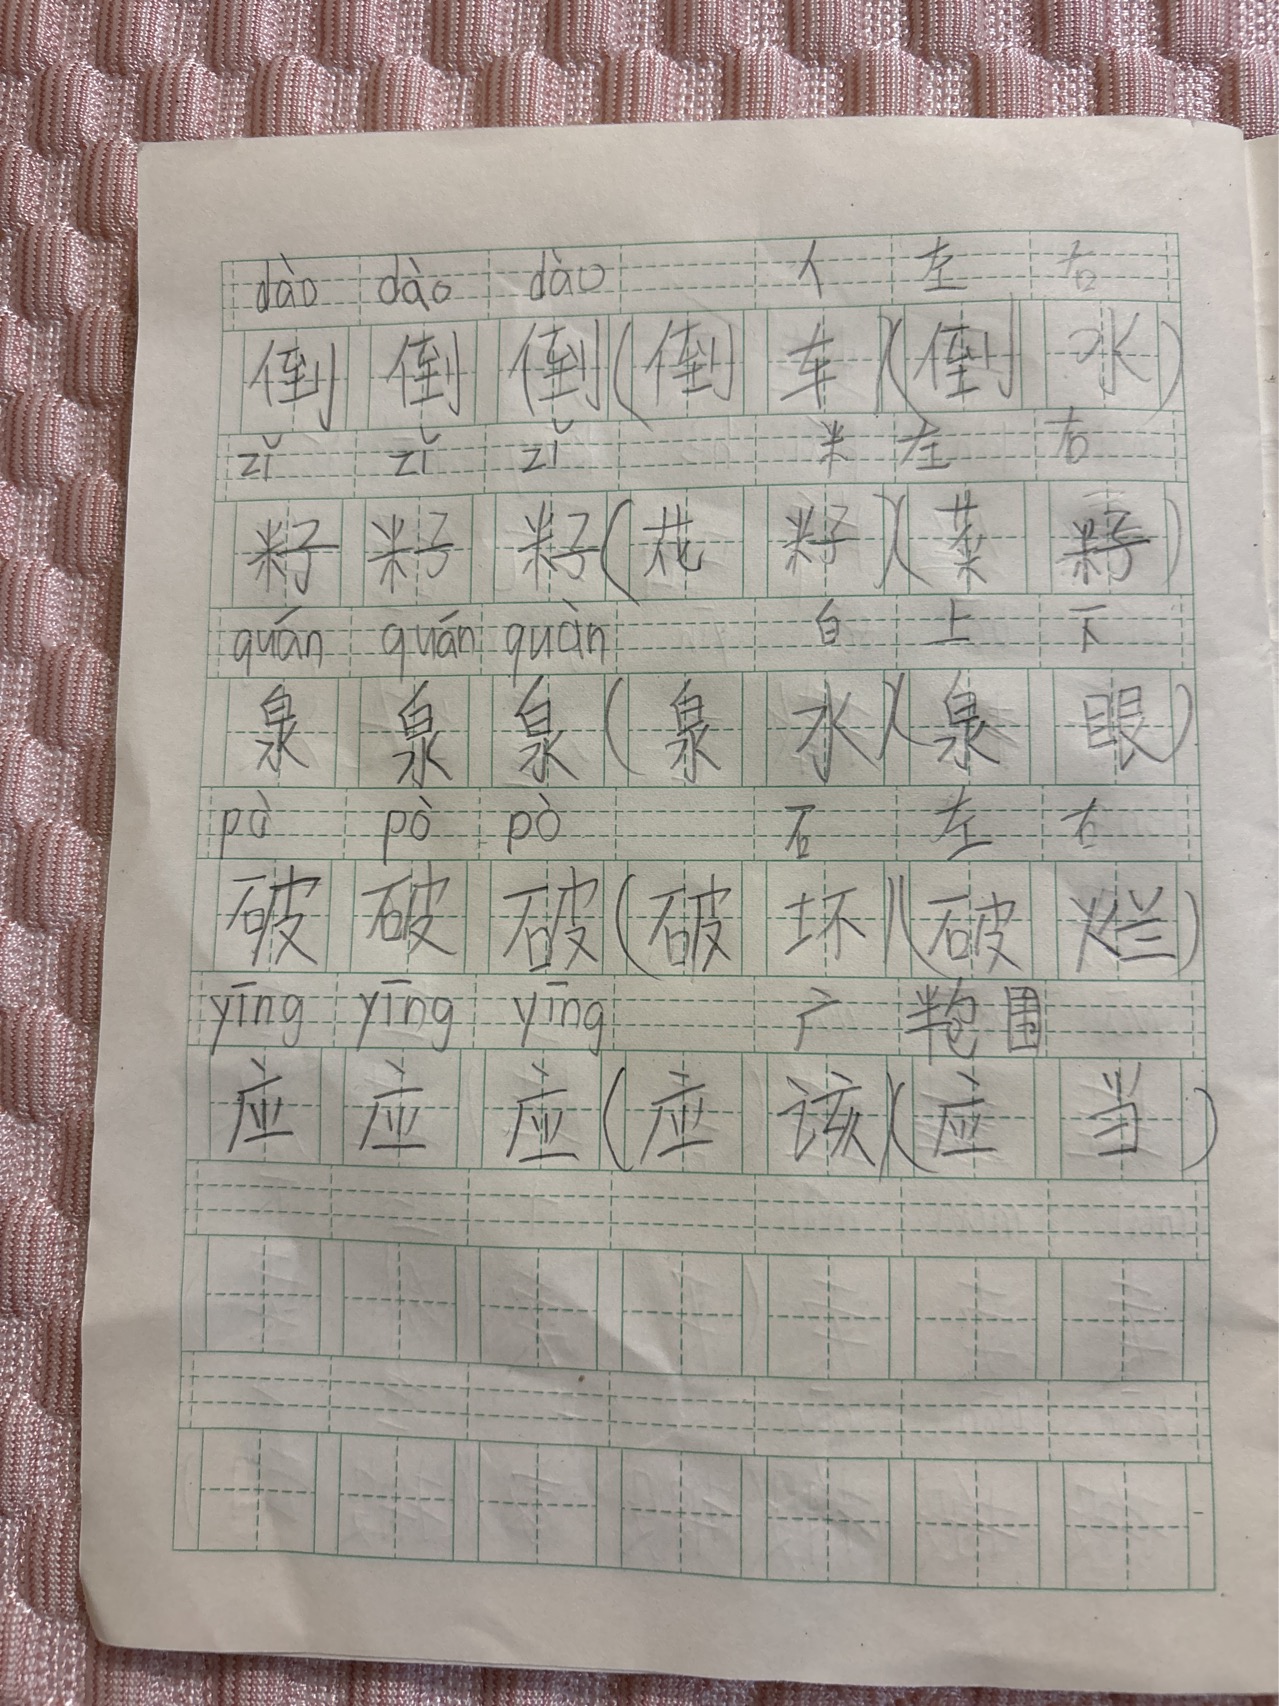 dào dào dào 亻 左 右
倒 倒 倒 (倒 车)(倒 水)
zǐ zǐ zǐ 米 左 右
籽 籽 籽 (花 籽)(菜 籽)
quán quán quàn 白 上 下
泉 泉 泉 (泉 水)(泉 眼)
pà pò pò 石 左 右
破 破 破 (破 坏)(破 烂)
yīng yīng yīng 广 半包 围
应 应 应 (应 该)(应 当)